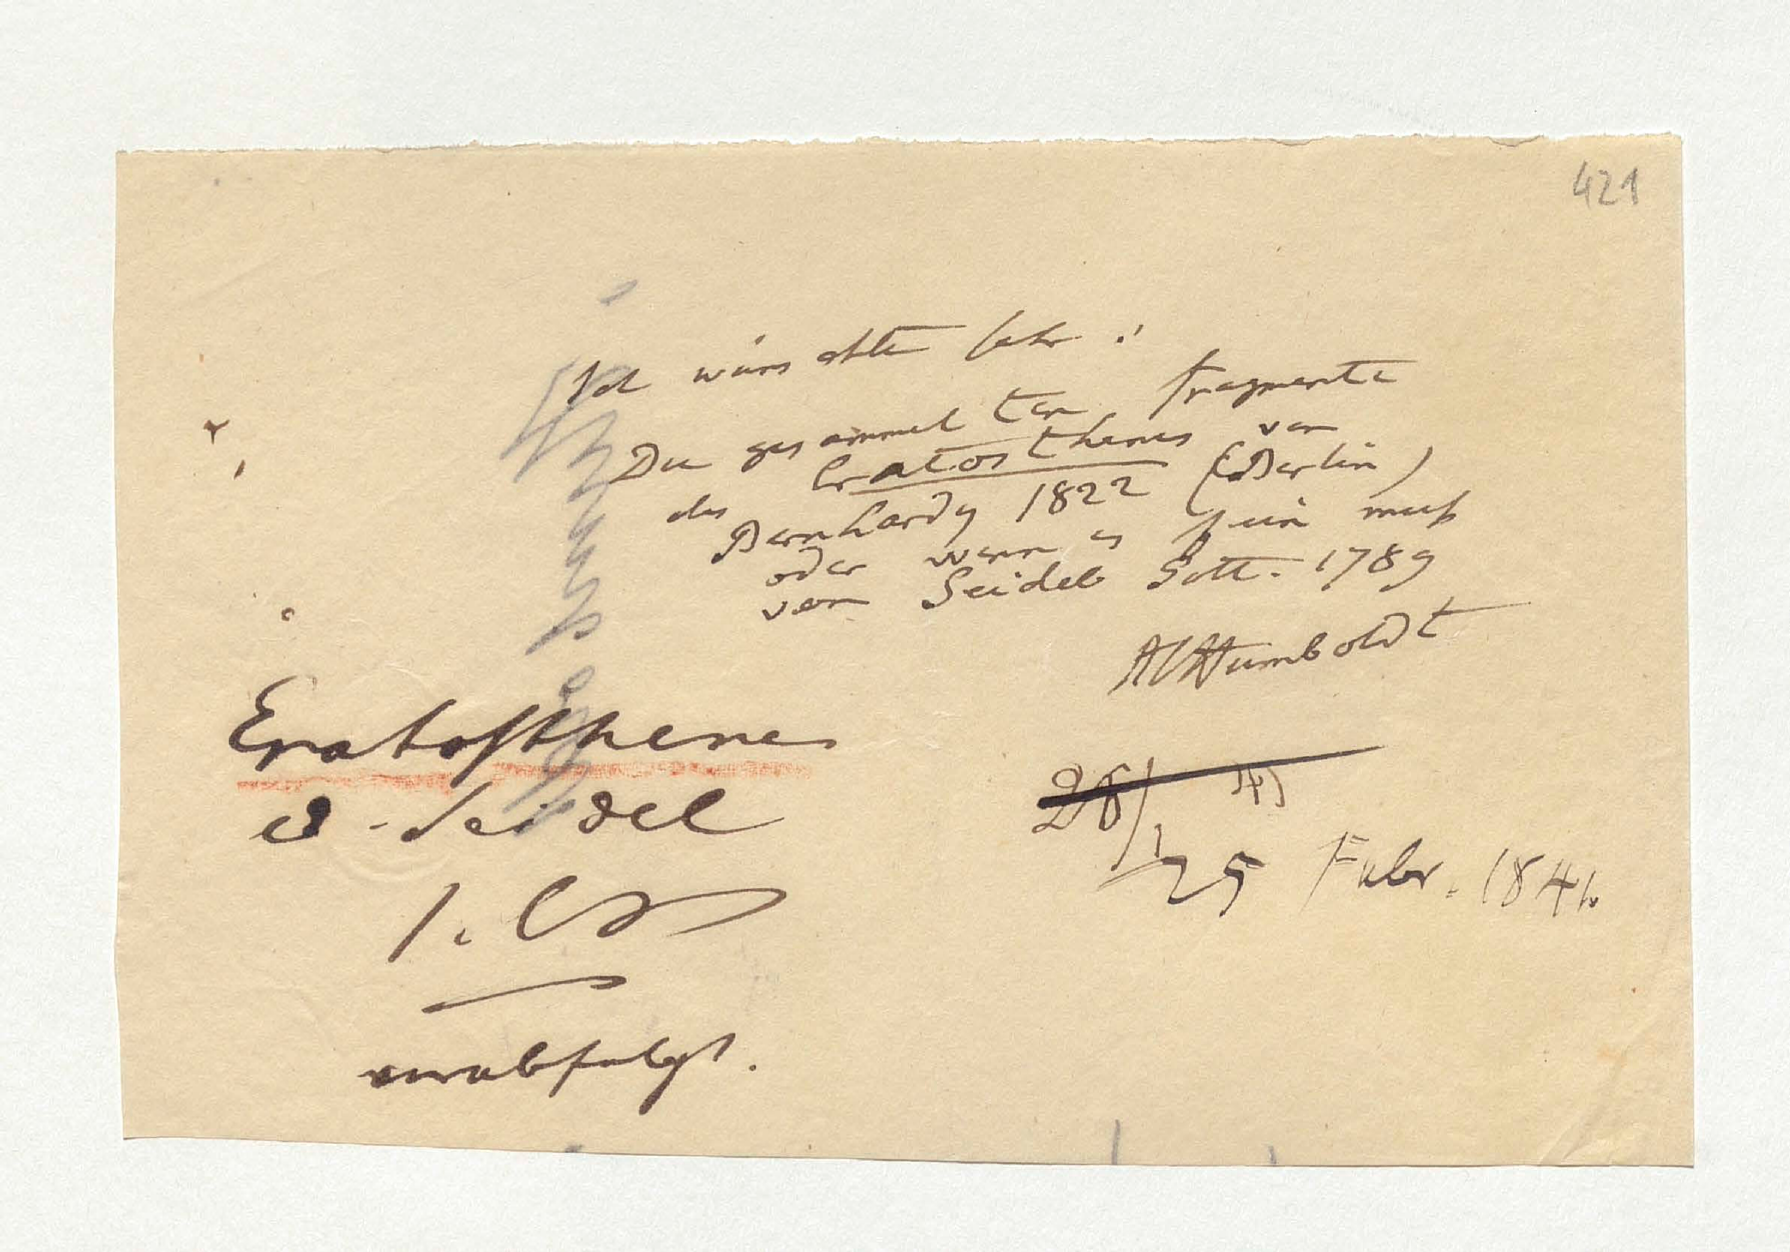 421
Ich wünschte sehr:
Die gesammelten Fragmente
des Eratosthenes von
Bernhardy 1822 (Berlin)
oder wenn es sein muß
von Seidel Gött. 1789
AvHumboldt
Eratosthenes
ed. Seidel
verabfolgt.
28/1 41
25 Febr. 1841.